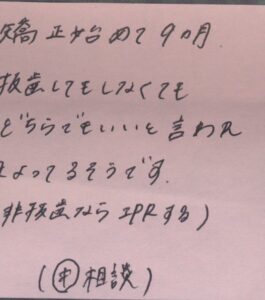 矯正始めて9ヵ月
抜歯してもしなくても
どちらでもいいと言われ
まよってるそうです.
非抜歯ならIPRする)
(中相談)